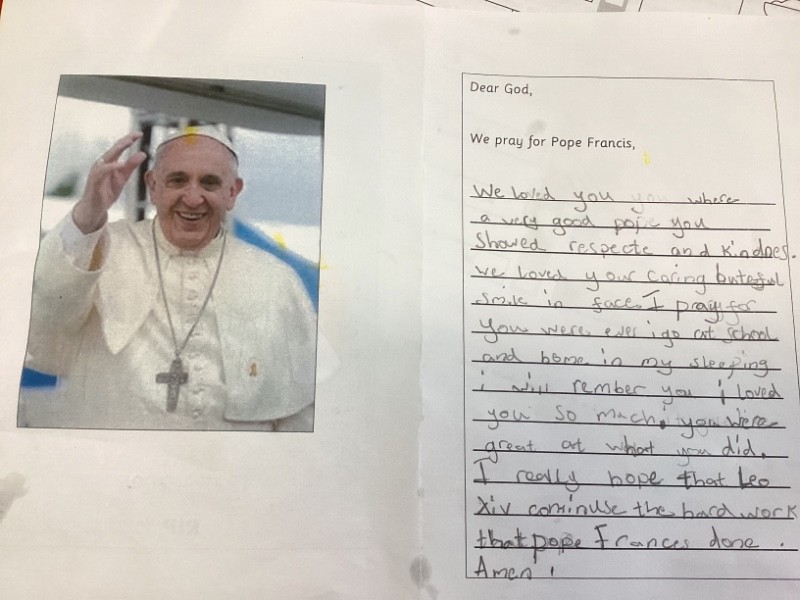 Dear God,
We pray for Pope Francis,
We loved you you where
a very good pope you
Showed respecte and kindnes.
we loved your caring buteful
smile in face I pray for
you were ever i go at school
and home in my sleeping
i will rember you i loved
you so much, you were
great at what you did.
I really hope that Leo
Xiv coninuse the hard work
that pope Frances done .
Amen !